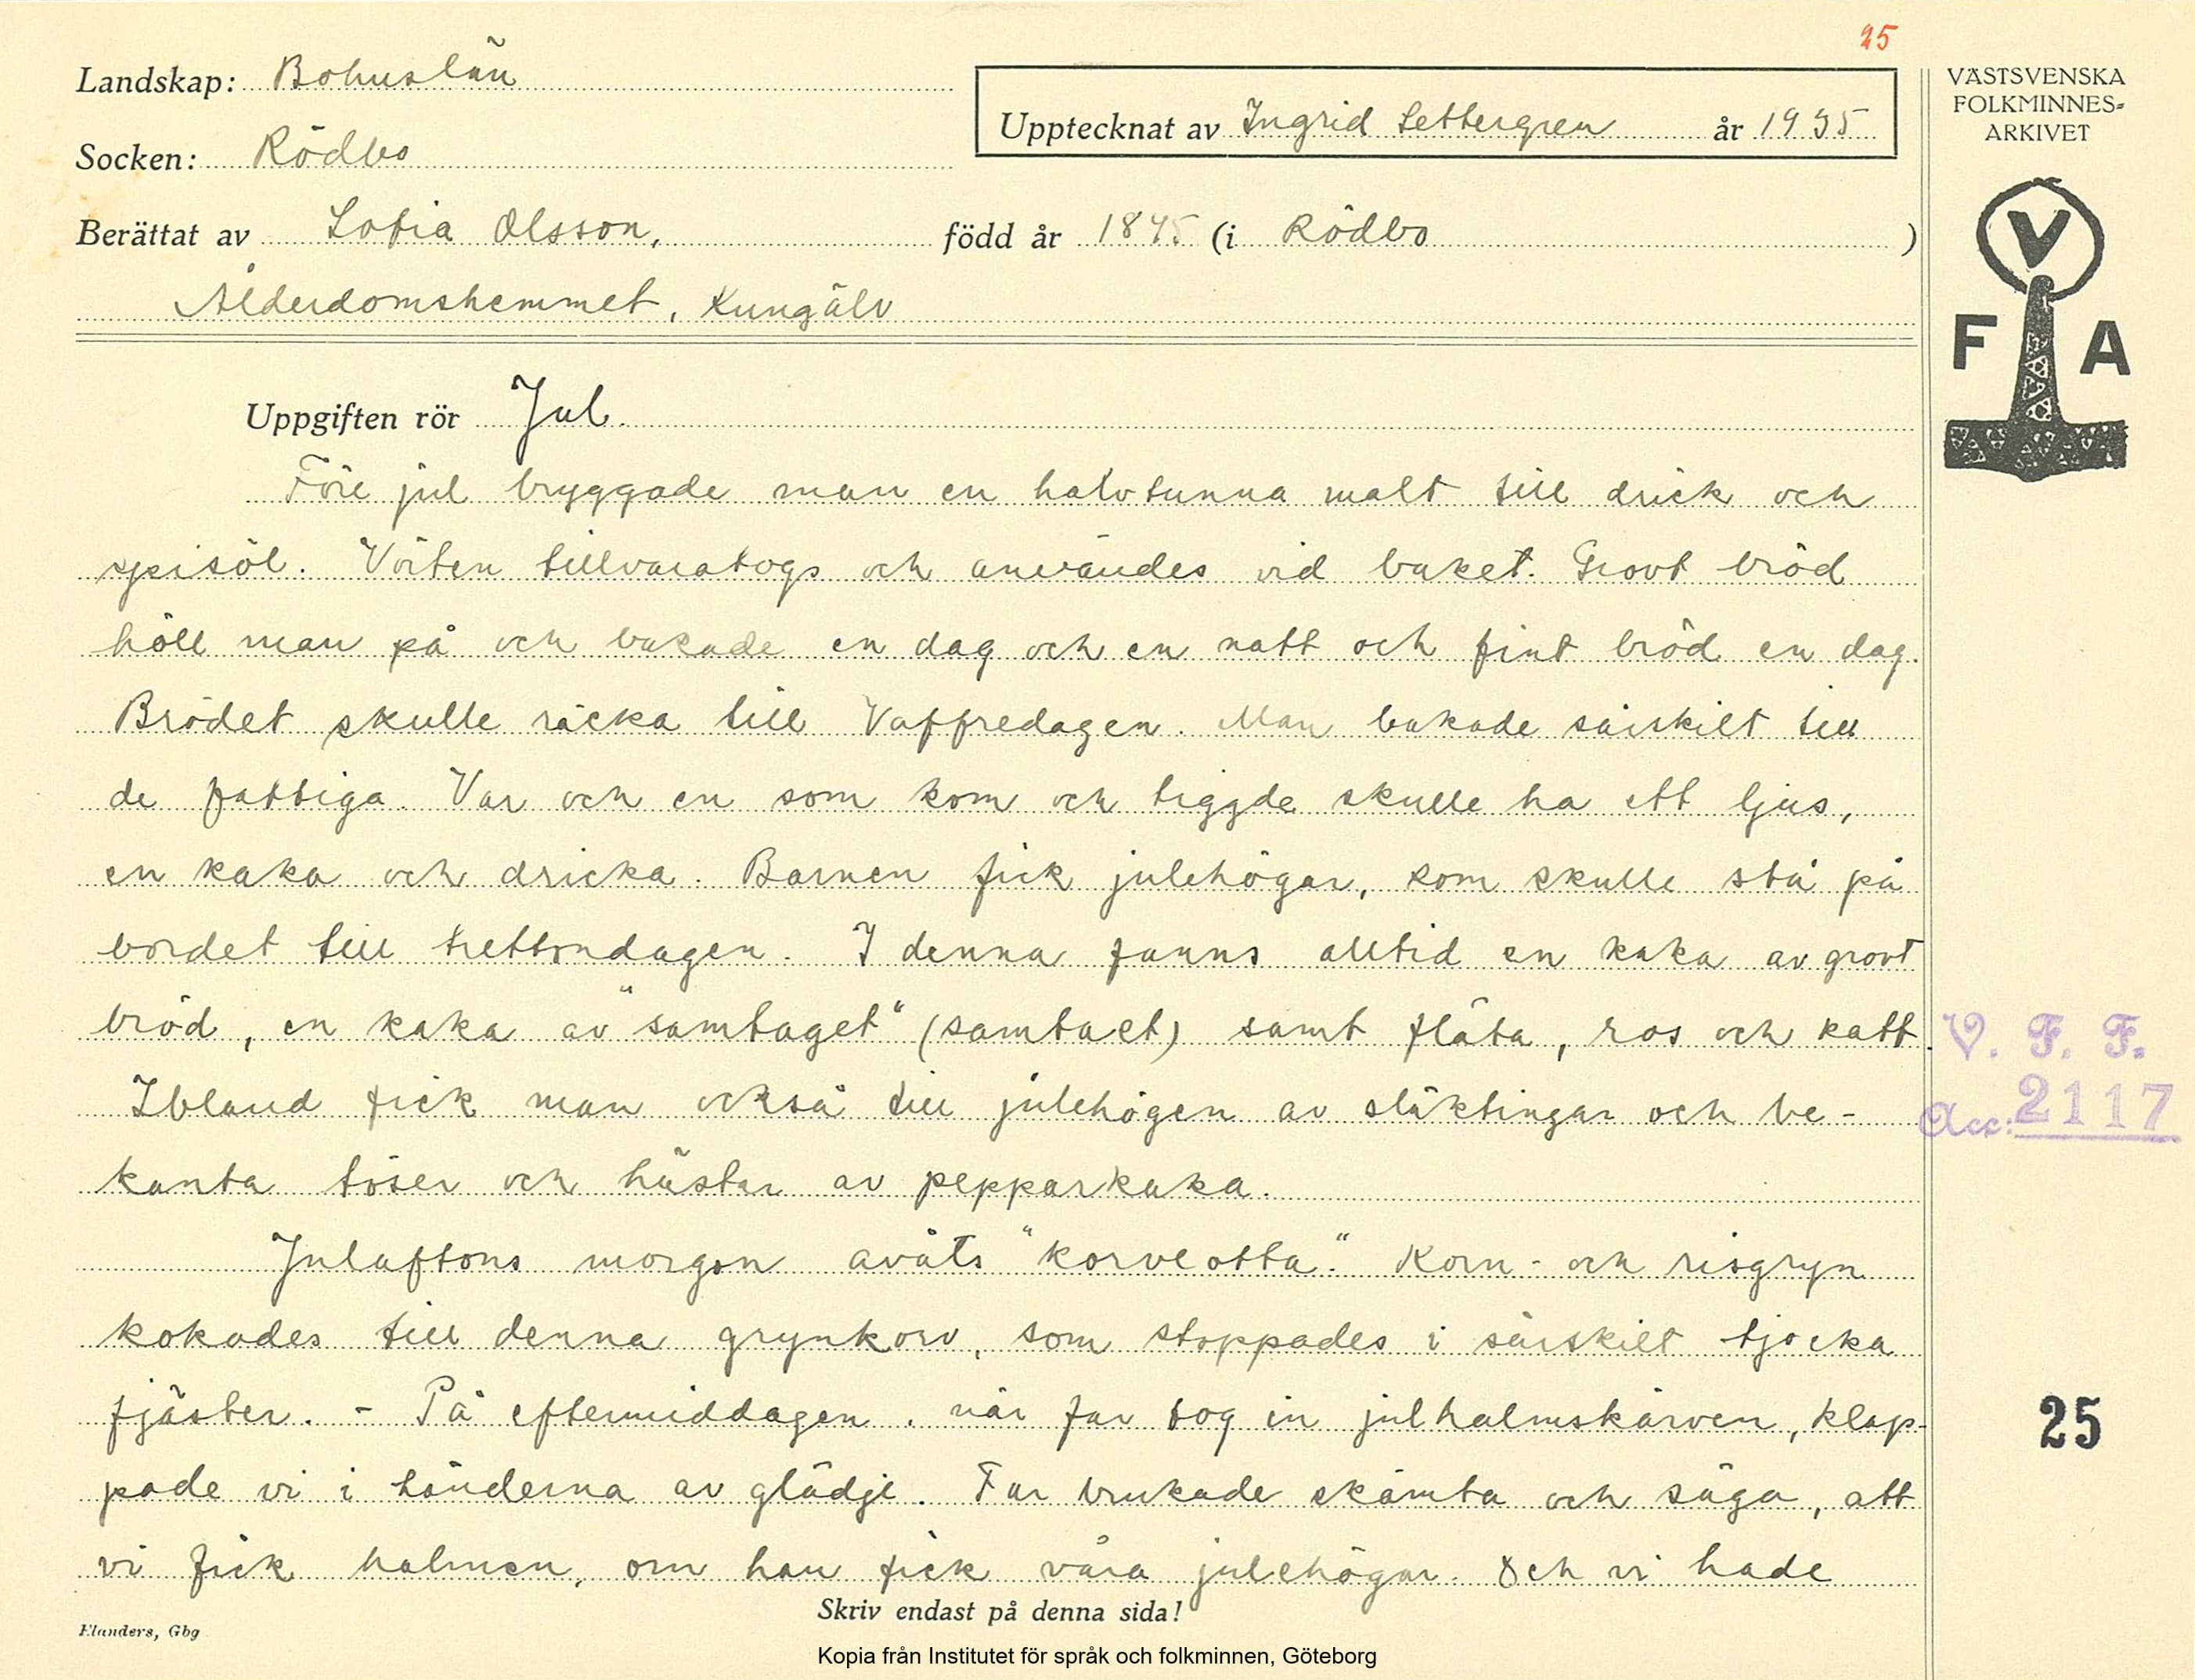 25
Landskap: Bohuslän
Upptecknat av Ingrid Settergren år 1935
Socken: Rödbo
Berättat av Sofia Olsson, född år 1845 (i Rödbo )
Ålderdomshemmet, Kungälv
VÄSTSVENSKA
FOLKMINNES-
ARKIVET
V
F A
Uppgiften rör Jul.
Före jul bryggade man en halvtunna malt till drick och
spisöl. Vörten tillvaratogs och användes vid baket. Grovt bröd
höll man på och bakade en dag och en natt och fint bröd en dag.
Brödet skulle räcka till Vaffredagen. Man bakade särskilt till
de fattiga. Var och en som kom och tiggde skulle ha ett ljus,
en kaka och dricka. Barnen fick julehögar, som skulle stå på
bordet till trettondagen. I denna fanns alltid en kaka av grovt
bröd, en kaka av "samtaget" (samtaet) samt fläta, ros och katt.
Ibland fick man också till julehögen av släktingar och be-
kanta töser och hästar av pepparkaka.
Julaftons morgon avåts "korveotta". Korn- och risgryn
kokades till denna grynkorv, som stoppades i särskilt tjocka
fjäster. - På eftermiddagen, när far tog in julhalmskärven, klap-
pade vi i händerna av glädje. Far brukade skämta och säga, att
vi fick halmen, om han fick våra julehögar. Och vi hade
V. F. F.
Acc: 2117
25
Skriv endast på denna sida!
Elanders, Gbg
Kopia från Institutet för språk och folkminnen, Göteborg